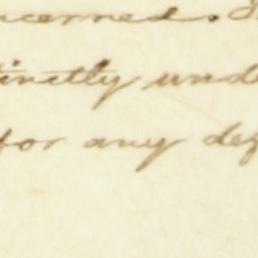 ncerned. 
tinctly und
for any def